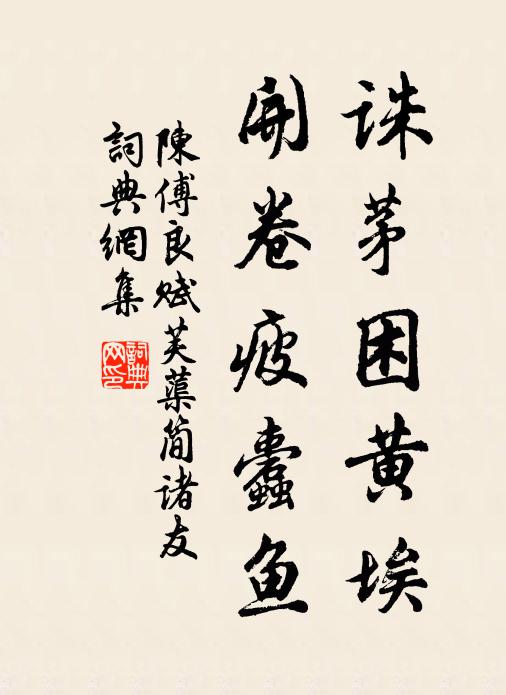 诛茅困黄埃
開卷疲蠹鱼
陳傅良赋芙蕖简诸友
詞典網集
詞典網印